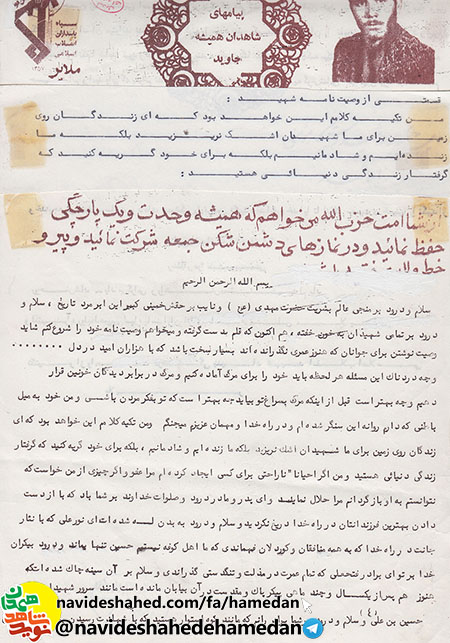 پیامهای
شاهدان همیشه
جاوید
سپاه
پاسداران
انقلاب
اسلامی
ملایر
قسمتی از وصیت نامه شهید :
من تکیه کلامم این خواهد بود که ای زندگان روی
زمین برای ما شهیدان اشک نریزید بلکه ما
زنده ایم و شادمانیم بلکه برای خود گریه کنید که
گرفتار زندگی دنیائی هستید :
از شما امت حزب الله می خواهم که همیشه وحدت و یک پارچگی
حفظ نمائید و در نمازهای دشمن شکن جمعه شرکت نمائید و پیرو
خط ولایت
بسم الله الرحمن الرحیم
سلام و درود بر منجی عالم بشریت حضرت مهدی (عج) و نایب بر حقش خمینی کبیر این ابر مرد تاریخ ، سلام و
درود بر تمامی شهیدان به خون خفته ، هم اکنون که قلم بدست گرفته و میخواهم وصیت نامه خود را شروع کنم شاید
وصیت نوشتن برای جوانان که هنوز عمری نگذرانده اند بسیار سخت باشد که با هزاران امید در دل ........
وچه دردناک این مسئله هر لحظه باید خود را برای مرگ آماده کنیم و مرگ در برابر دیدگان خونین قرار
دهیم و چه بهتر است قبل از اینکه مرگ بسراغ تو بیاید چه بهتر است که تو بفکر مردن باشی و من خود به میل
باطنی که دارم روانه این سنگر شده ام و در راه خدا و میهمان عزیزم میجنگم ومن تکیه کلامم این خواهد بود که ای
زندگان روی زمین برای ما شهیدان اشک نریزید بلکه ما زنده ایم و شادمانیم ، بلکه برای خود گریه کنید که گرفتار
زندگی دنیائی هستید و من اگر احیانا" ناراحتی برای کسی ایجاد کرده ام مرا عفو و اگر چیزی از من خواست که
نتوانستم به او باز گردانم مرا حلال نمایند وای پدر و مادر درود و صلوات خداوند بر شما باد که از دست
دادن بهترین فرزندانتان در راه خدا دریغ نکردید و سلام و درود به بدن له شده ات ای نورعلی که با نثار
جانت در راه خدا که به همه منافقان و کوردلان فهماندی که ما اهل کوفه نیستیم حسین تنها بماند و درود بیکران
خدا بر تو ای برادر تحملی که تمام عمرت در مذلت و تنگ دستی گذراندی و سلام بر آن سینه چاک شده ات که
هنوز هم پس از یکسال و چند ماهی پیکر پاک و مقدست در آن بیابان مانده است مانند سرور شهیدان
حسین بن علی و سلام و درود
navideshahed.com/fa/hamedan
@navideshahedehamedan
نوید شاهد همدان